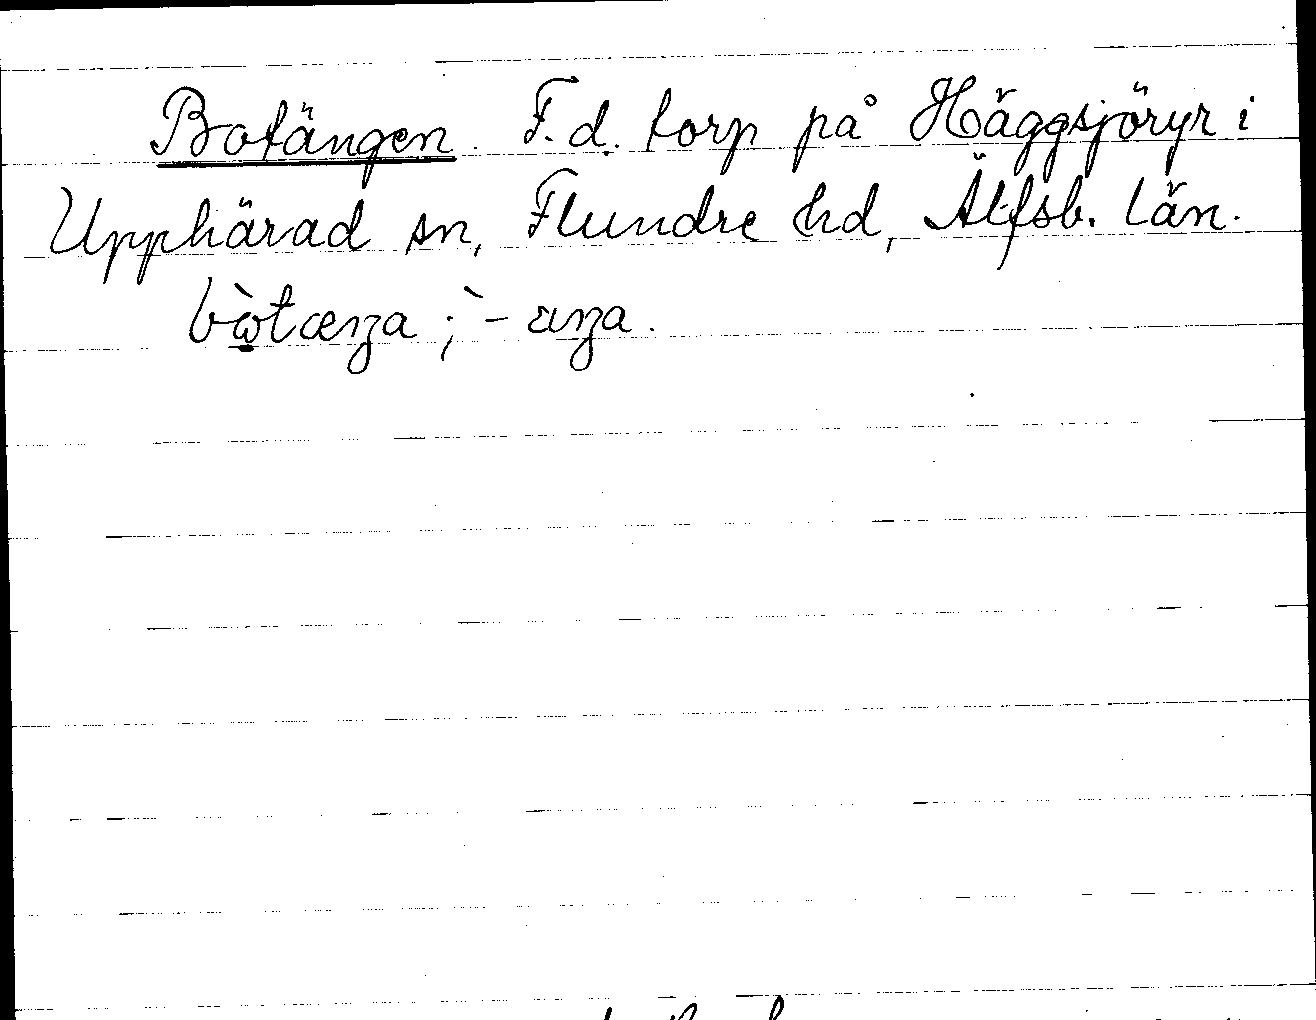 Botängen. F.d. torp på Häggsjöryr i
Upphärad sn, Flundre hd, Älfsb. län.
bòtæŋa; `- aŋa.